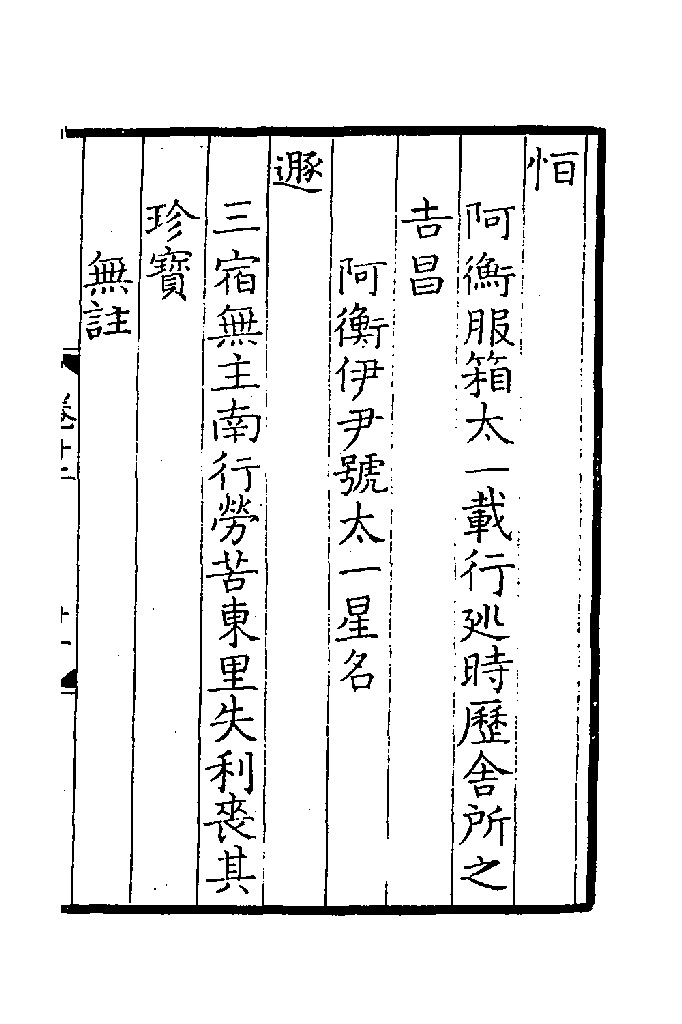 恒
阿衡服箱太一載行廵時歷舍所之
吉昌
阿衡伊尹號太一星名
遯
三宿無主南行勞苦東里失利喪其
珍寶
無註